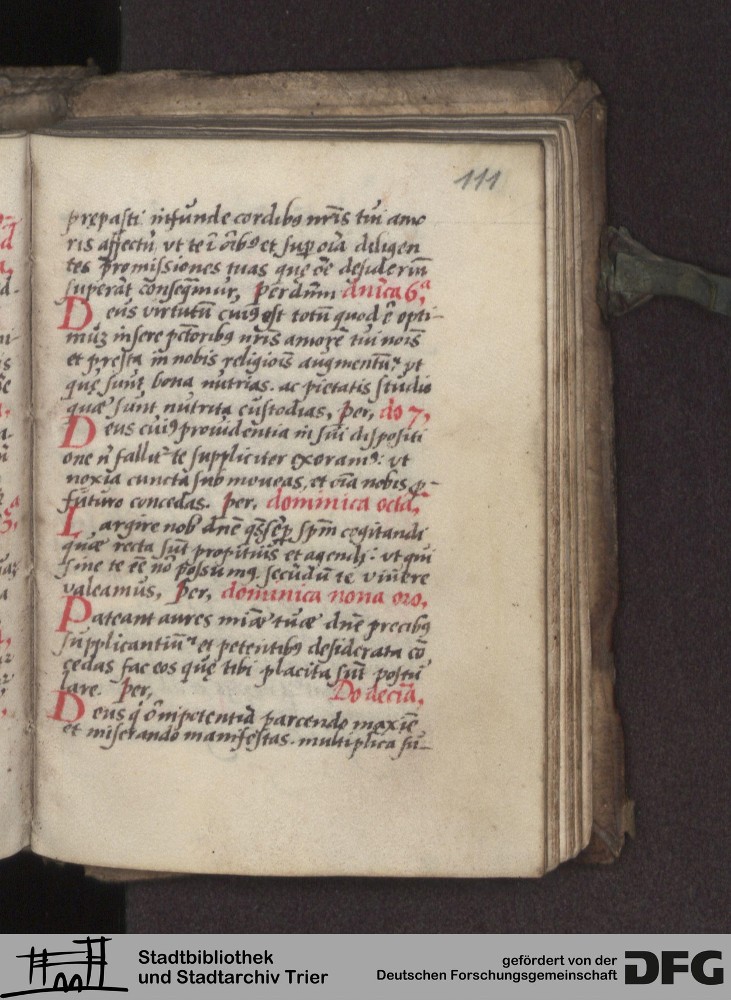 111
prępasti infunde cordibꝰ nr̄is tui amo
ris affectū vt te ī oībꝰ et suꝑ oīa diligen
tes promissiones tuas que oē desideriū
superāt conseq̄mur, per dn̄m dnīca 6ᵃ,
Deus virtutū cuiꝰ est totū quod ē opti-
muȝ insere pectoribꝰ nr̄is amorē tui nois
et pręsta in nobis religiois augmentū, vt
quę sunt bona nutrias. ac pietatis studio
quæ sunt nutrita custodias, per, do 7,
Deus cuiꝰ prouidentia in sui dispositi
one nō fallit te suppliciter exoramꝰ: vt
noxia cuncta submoueas, et oīa nobis ꝓ-
futuro concedas. per, dominica octā,
Largire nob dn̄e q̄s seꝑ spm̄ cogitandi
quæ recta sūt propitius et agendi: vt qui
sine te eē nō possumꝰ. secūdū te viuere
valeamus, per, dominica nona oro,
Pateant aures miæ tuæ dn̄e precibꝰ
supplicantiū et petentibꝰ desiderata cō
cędas fac eos quę tibi placita sūt postu
lare. per, Do decīa,
Deus q̇ oīnipotentiā parcendo maxīe
et miserando manifestas. multiplica su-
Stadtbibliothek
und Stadtarchiv Trier
gefördert von der
Deutschen Forschungsgemeinschaft
DFG